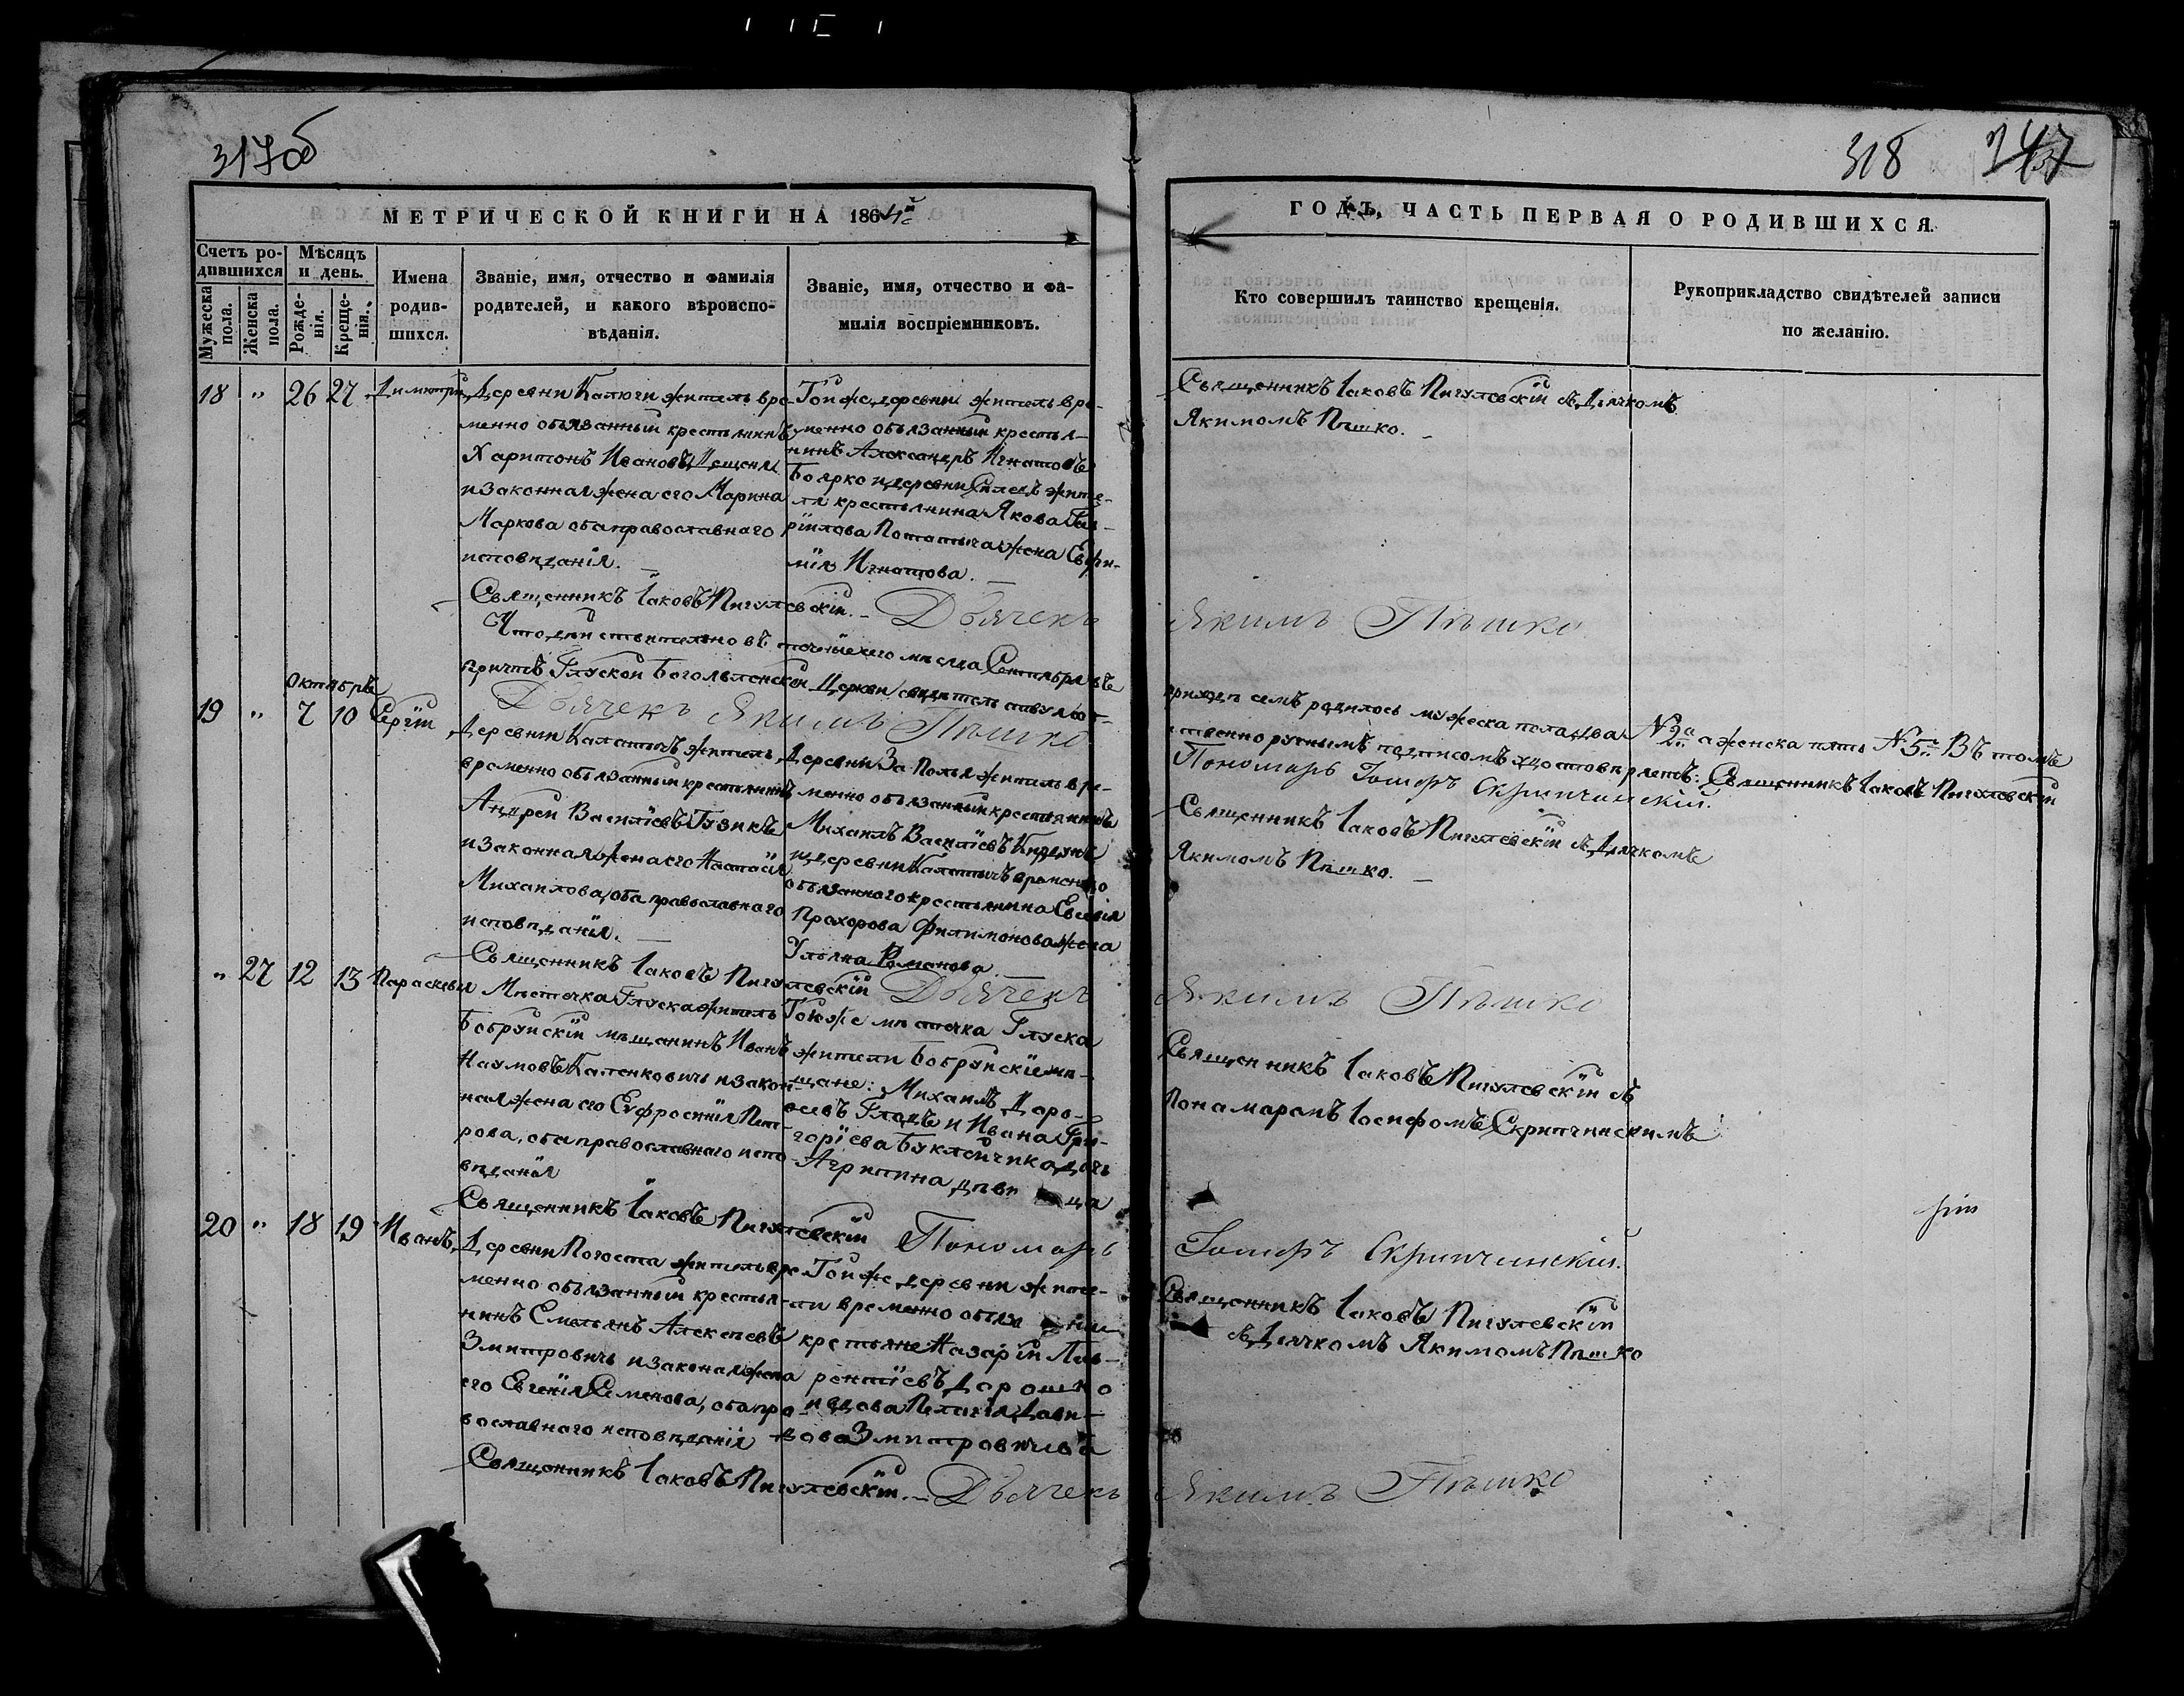 317об
318 347
МЕТРИЧЕСКОЙ КНИГИ НА 1864й
ГОДЪ, ЧАСТЬ ПЕРВАЯ О РОДИВШИХСЯ.
Счетъ ро-
дившихся
Мужеска
пола.
Женска
пола.
Мѣсяцъ
и день.
Рожде-
нія.
Креще-
нія.
Имена
родив-
шихся.
Званіе, имя, отчество и фамилія
родителей, и какого вѣроиспо-
вѣданія.
Званіе, имя, отчество и фа-
милія воспріемниковъ.
Кто совершилъ таинство крещенія.
Рукоприкладство свидѣтелей записи
по желанію.
18 " 26 27 Димитрій
Деревни Калюги житель вре-
менно обязанный крестьянинъ
Харитонъ Ивановъ
и законная жена его Марина
Маркова оба православнаго
исповѣданія.
Тойже деревни житель вре-
менно обязанный крестья-
нинъ Александръ Игнатовъ
Боярко и деревни жите-
ля крестьянина Якова Гав-
рiилова жена Евфи-
мія Игнатова.
Священникъ Іаковъ Пигулевскій съ Дьячкомъ
Якимомъ Пѣшко.
Священникъ Іаковъ Пигулевскій. Дьячекъ Якимъ Пѣшко.
Что действительно въ теченіе сего мѣсяца Сентября въ приходѣ семъ родилось мужеска пола два № 2а а женска пять № 5ть Въ томъ
причтъ Глуской Богоявленской Церкви свидѣтельствуя соб-ственноручнымъ подписомъ удостовѣряетъ: Священникъ Іаковъ Пигулевскій
Дьячекъ Якимъ Пѣшко Пономарь Іосифъ Скрипчинскій.
Октябрь
19 " 7 10 Сергій
Деревни Калатичъ житель
временно обязанный крестьянинъ
Андрей Васильевъ Гузикъ
и законная жена его Настасія
Михаилова, оба православнаго
исповѣданія.
Деревни За Полья житель вре-
менно обязанный крестьянинъ
Михаилъ Васильевъ
и деревни Калатичъ временно
обязанного крестьянина Евсевія
Прохорова Филимонова жена
Ульяна Романова.
Священникъ Іаковъ Пигулевскій съ Дьячкомъ
Якимомъ Пѣшко.
Священникъ Іаковъ Пигулевскій Дьячекъ Якимъ Пѣшко
" 27 12 13 Параскевія
Мѣстечка Глуска житель
Бобруйскій мѣщанинъ Иванъ
Наумовъ Каленковичъ и закон-
ная жена его Евфросинія Пет-
рова, оба православнаго испо-
вѣданія
Тогоже мѣстечка Глуска
жители Бобруйскіе мѣ-
щане: Михаилъ Доро-
феевъ и Ивана Гри-
горіева Буклейчика дочь
Агрипина дѣвица
Священникъ Іаковъ Пигулевскій съ
Понамаремъ Іосифомъ Скрипчинскимъ
Священникъ Іаковъ Пигулевскій Пономарь Іосифъ Скрипчинскій.
20 " 18 19 Иванъ
Деревни Погоста житель вре-
менно обязанный крестья-
нинъ Емельянъ Алексѣевъ
Змитровичъ и законная жена
его Евгенія Семенова, оба пра-
вославного исповѣданія
Тойже деревни жите-
ли временно обяза ные
крестьяне Назарій Лав-
рентіевъ Дорошко
и вдова Пелагія Дави-
дова Змитровичева
Священникъ Іаковъ Пигулевскій
съ Дьячкомъ Якимомъ Пѣшко
Священникъ Іаковъ Пигулевскій. Дьячекъ Якимъ Пѣшко